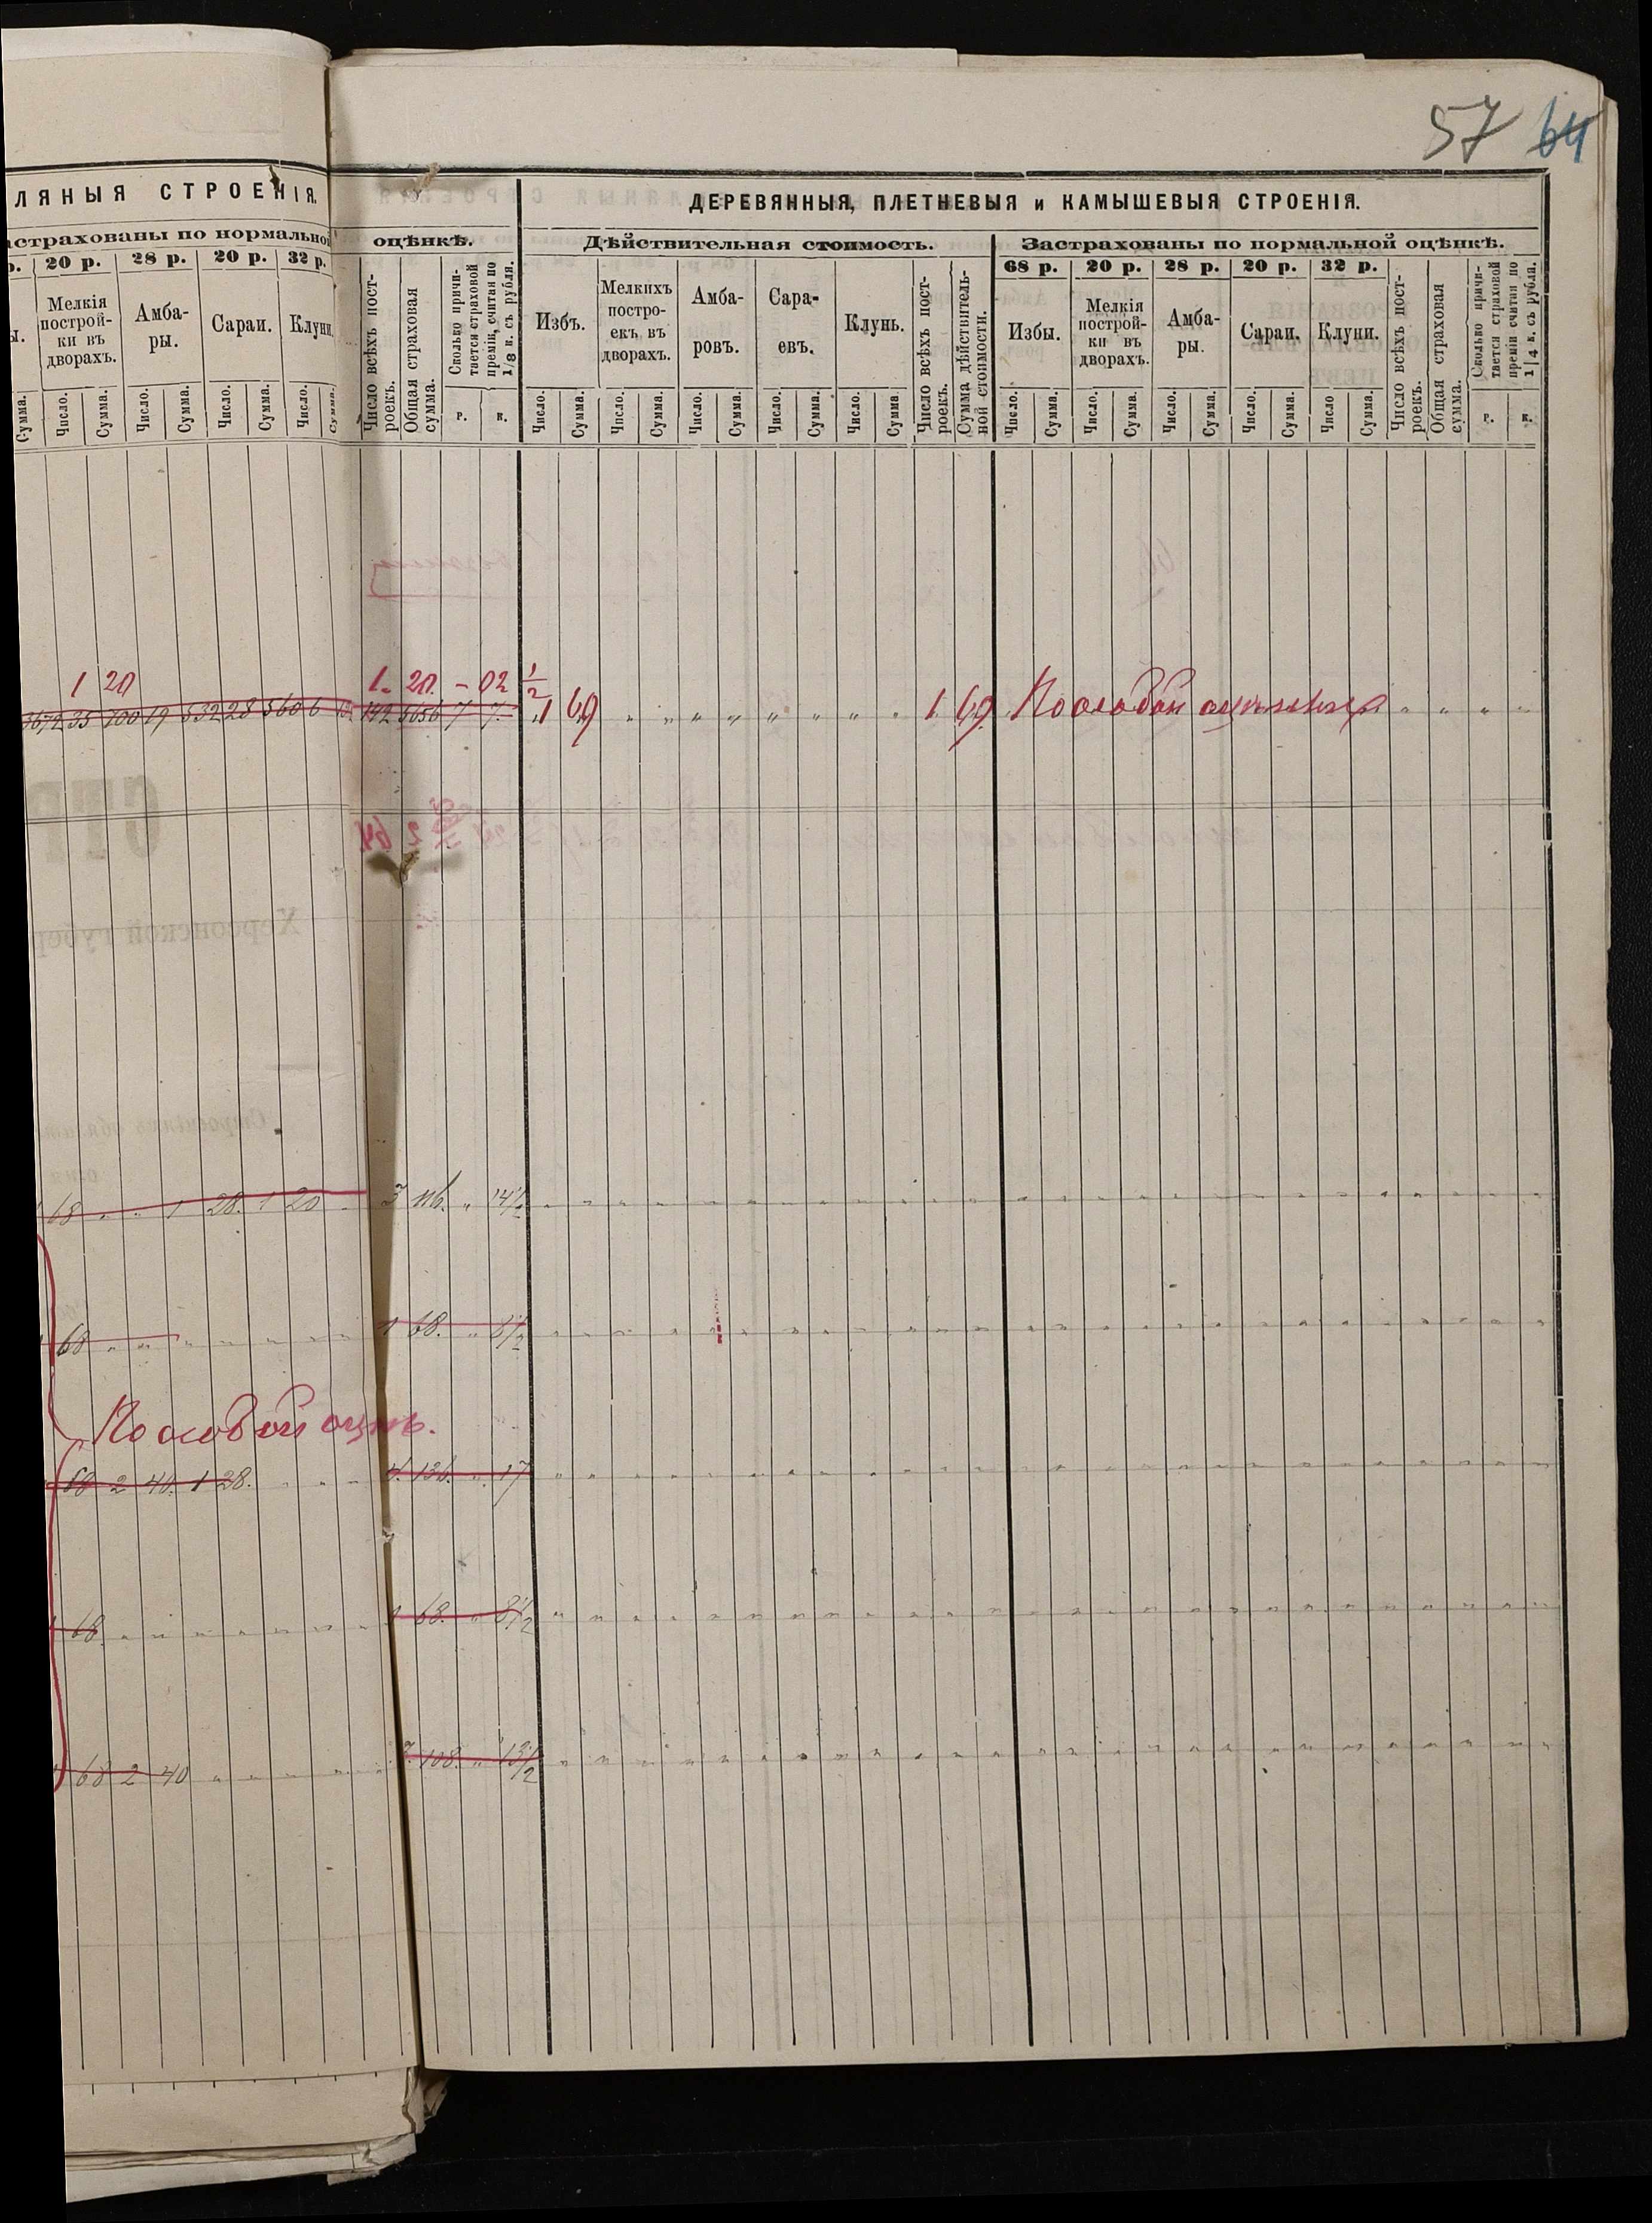 57 64
ЛЯНЫЯ СТРОЕНІЯ.
ДЕРЕВЯННЫЯ, ПЛЕТНЕВЫЯ и КАМЫШЕВЫЯ СТРОЕНІЯ.
астрахованы по нормальной
оцѣнкѣ.
Дѣйствительная стоимость.
Застрахованы по нормальной оцѣнкѣ.
р. 20 р. 28 р. 20 р. 32 р.
68 р. 20 р. 28 р. 20 р. 32 р.
Мелкія построй-
ки въ
дворахъ.
Амба-
ры.
Сараи.
Клуни.
Число всѣхъ пост-
роекъ.
Общая страховая
сумма.
Сколько причи-
тается страховой
преміи, считая по
1/8 к. съ рубля.
Избъ.
Мелкихъ
построекъ въ
дворахъ.
Амба-
ровъ.
Сара-
евъ.
Клунь.
Число всѣхъ пост-
роекъ.
Сумма дѣйствитель-
ной стоимости.
Избы.
Мелкія
построй-
ки въ
дворахъ.
Амба-
ры.
Сараи.
Клуни.
Число всѣхъ пост-
роекъ.
Общая страховая
сумма.
Сколько причи-
тается страховой
преміи считая по
1/4 к. съ рубля.
Сумма. Число. Сумма. Число. Сумма. Число. Сумма. Число. Сумма. р. к. Число. Сумма. Число. Сумма. Число. Сумма. Число. Сумма. Число. Сумма. Число. Сумма. Число. Сумма. Число. Сумма. Число. Сумма. Число Сумма. р. к.
1 20 1. 20. - 02 1/2
3672 35 700 19 532 28 560 6 192 142 5656 7 7. 1 69 1 69 По особой оцѣнкѣ
68 " " 1 28. 1 20 3 116. " 14 1/2
68 1 68. " 8 1/2
По особой оцѣн.
68 2 40. 1 28. 4. 136. " 17
68. 1 68. " 8 1/2
68 2 40 3. 108. " 13 1/2